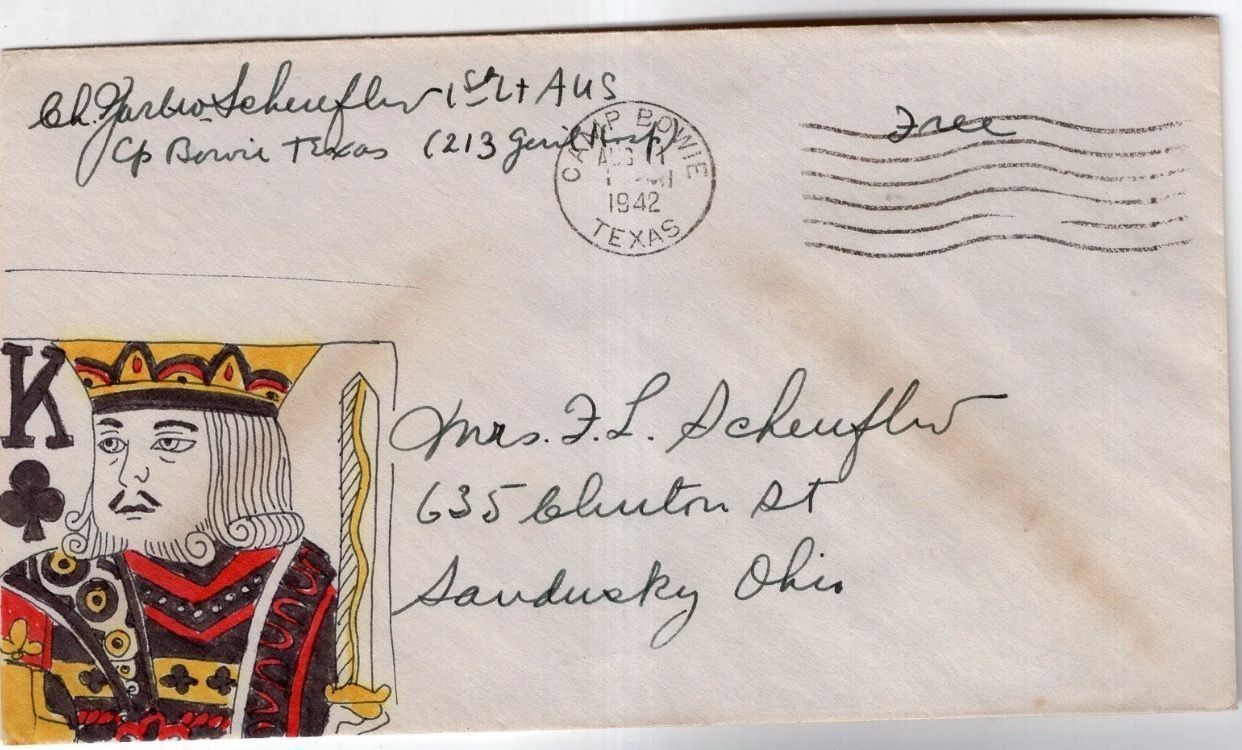 Ch. Scheufler 1st Lt AUS
Cp Bowie Texas (213 Genl Hosp)
CAMP BOWIE
AUG 11
1942
TEXAS
Free
K
Mrs. F. L. Scheufler
635 Clinton St
Sandusky Ohio